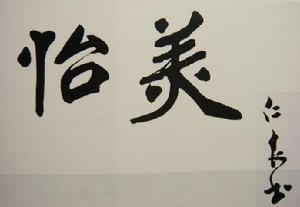 怡美
仁表书